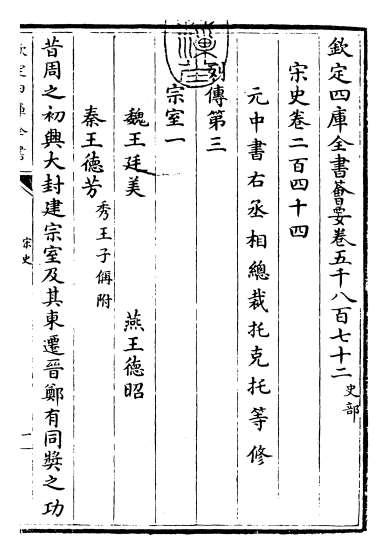 欽定四庫全書薈要卷五千八百七十二 史部
宋史卷二百四十四
元中書右丞相總裁托克托等修
列傳第三
宗室一
魏王廷美 燕王德昭
秦王德芳 秀王子偁附
昔周之初興大封建宗室及其東遷晉鄭有同獎之功
欽定四庫全書
宋史
一